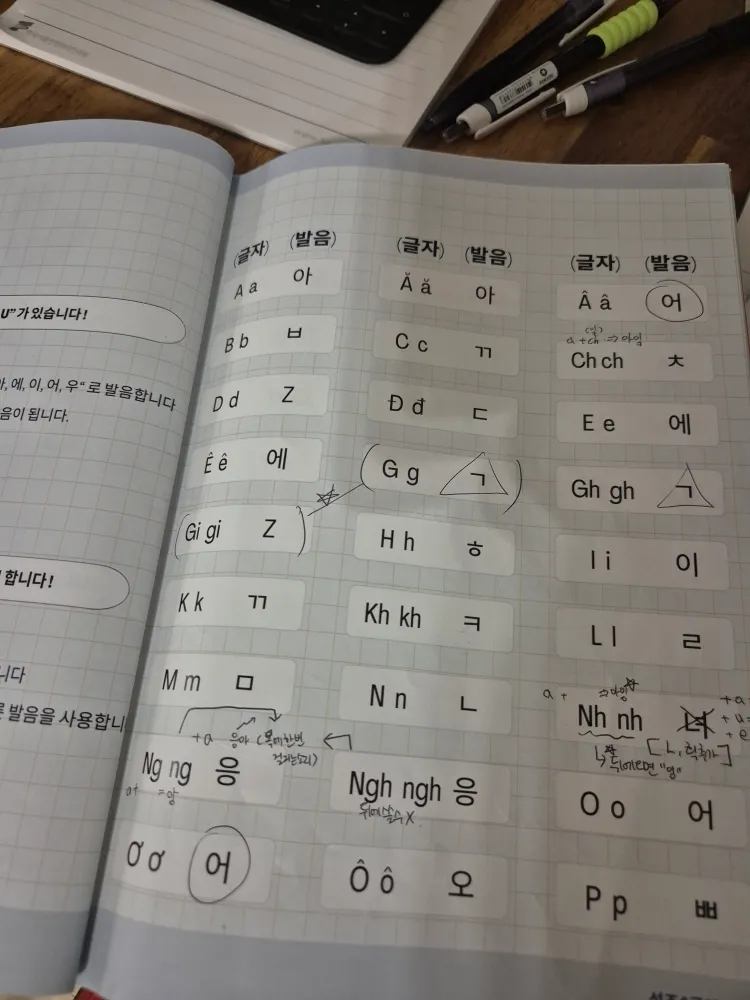 U"가 있습니다!
, 에, 이, 어, 우"로 발음합니다
음이 됩니다.
합니다!
니다
발음을 사용합니
(글자) (발음) (글자) (발음) (글자) (발음)
A a 아 Ă ă 아 Â â 어
B b ㅂ C c ㄲ Ch ch ㅊ
D d Z Đ đ ㄷ E e 에
Ê ê 에 G g ㄱ Gh gh ㄱ
Gi gi Z H h ㅎ I i 이
K k ㄲ Kh kh ㅋ L l ㄹ
M m ㅁ N n ㄴ a + ⇒아잉
Nh nh
뒤에오면 "잉"
+a 응아
Ng ng 응 Ngh ngh 응 O o 어
a+ =앙 뒤에 쓸수 X
Ơ ơ 어 Ô ô 오 P p ㅃ